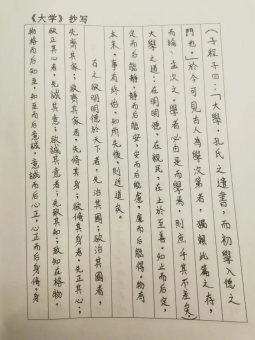 《大学》抄写
(子程子曰:「大學,孔氏之遺書,而初學入德之
門也。」於今可見古人為學次第者,獨賴此篇之存,
而論、孟次之。學者必由是而學焉,則庶乎其不差矣。
大學之道:在明明德,在親民,在止於至善。知止而后定,
定而后能靜,靜而后能安,安而后能慮,慮而后能得。物有
本末,事有終始,知所先後,則近道矣。
古之欲明明德於天下者,先治其國;欲治其國者,
先齊其家;欲齊其家者,先脩其身;欲脩其身者,先正其心;
欲正其心者,先誠其意;欲誠其意者,先致其知;致知在格物。
物格而后知至,知至而后意誠,意誠而后心正,心正而后身脩,身